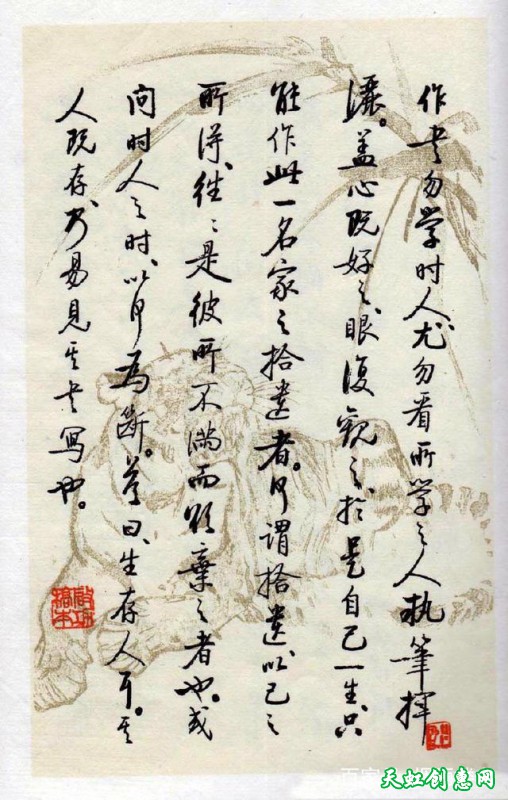 作书勿学时人，尤勿看所学之人执笔挥
洒。盖心既好之，眼复观之，于是自己一生，只
能作此一名家之拾遗者。何谓拾遗，以己之
所得，往往是彼所不满而欲弃之者也。或
问时人之时，以何为断。答曰：生存人耳。其
人既存，乃易见其书写也。
启功
天虹创惠网